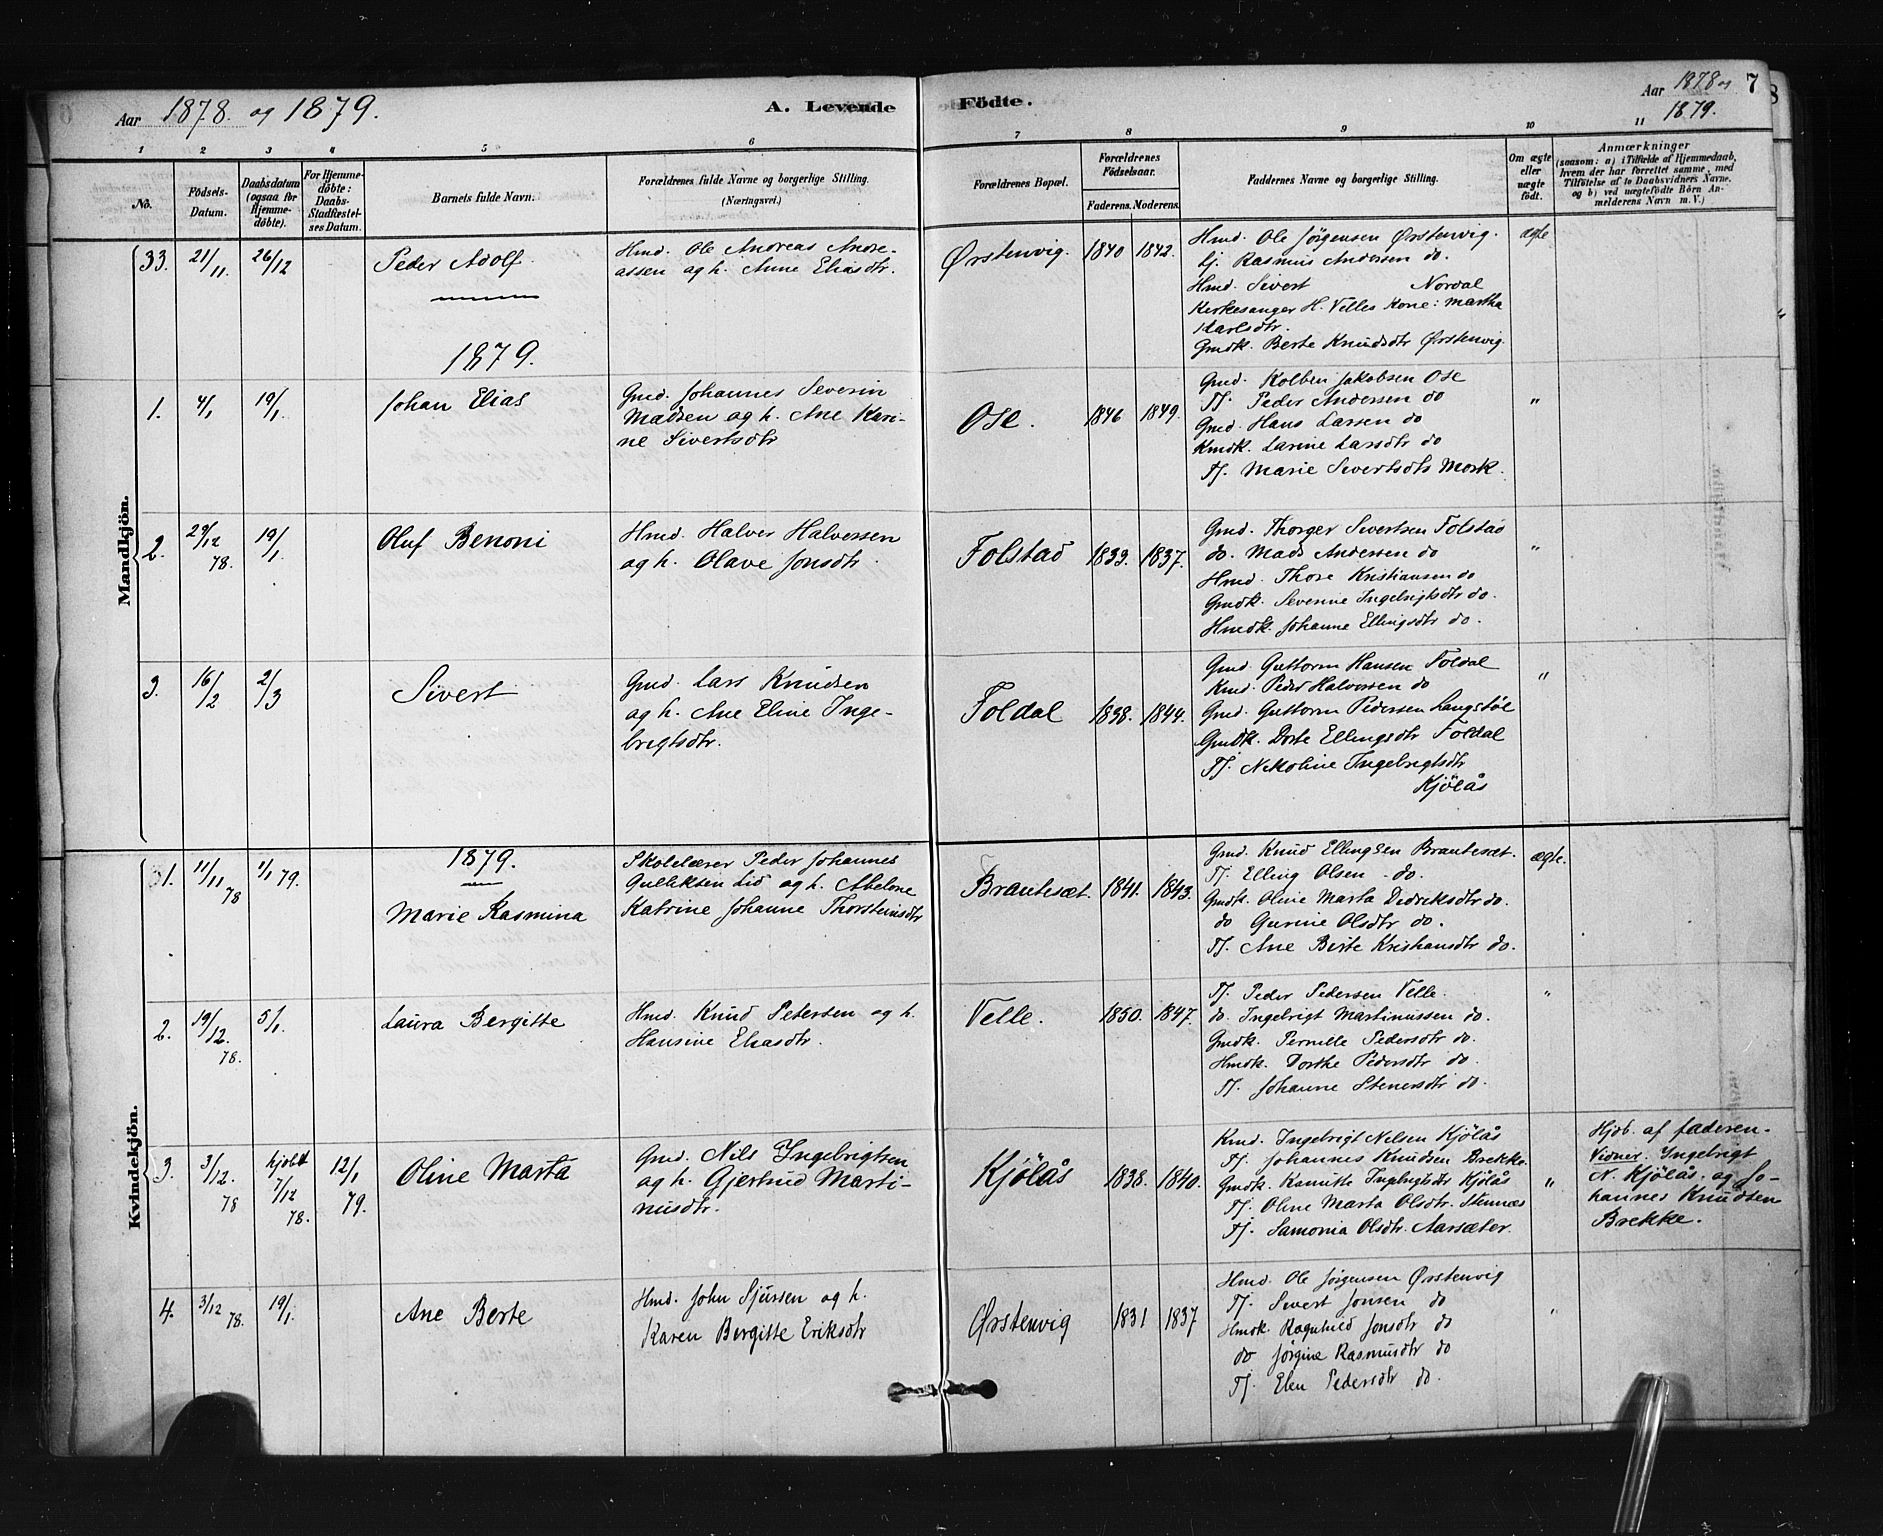 Aar 1878. og 1879.
A. Levende Födte.
Aar 1878 og 1879.
7
8
1 2 3 4 5 6 7 8 9 10 11
No.
Födsels-Datum.
Daabsdatum (ogsaa for Hjemmedöbte).
For Hjemmedöbte: Daabs-Stadfæstelses Datum.
Barnets fulde Navn.
Forældrenes fulde Navne og borgerlige Stilling. (Næringsvei.)
Forældrenes Bopæl.
Forældrenes Födselsaar.
Faderens. Moderens.
Faddernes Navne og borgerlige Stilling.
Om ægte eller uægte födt.
Anmærkninger
(saasom: a) i Tilfælde af Hjemmedaab, hvem der har forrettet samme, med Tilföielse af to Daabsvidners Navne, og b) ved uægtefödte Börn Anmelderens Navn m. V.)
Mandkjön.
33. 21/11. 26/12
Peder Adolf.
Hmd. Ole Andreas Andre-
assen og h. Anne Eliasdtr.
Ørstenvig. 1840 1842.
Hmd. Ole Jörgensen Ørstenvig.
Tj. Rasmus Andersen do.
Hmd. Sivert Nordal
Kirkesanger H. Velles Kone: Martha
Karlsdtr.
Gmdk. Berte Knudsdtr Ørstenvig.
ægte
1879.
1. 4/1 19/1.
Johan Elias
Gmd. Johannes Severin
Madsen og h. Ane Kari-
ne Sivertsdtr
Ose. 1846 1849.
Gmd. Kolben Jakobsen Ose
Tj. Peder Andersen do
Gmd. Hans Larsen do
Kmdk. Larine Larsdtr do
Tj. Marie Sivertsdtr Mork.
"
2. 29/12 78. 19/1
Oluf Benoni
Hmd. Halver Halvorsen
og h. Olave Jonsdtr.
Folstad 1833. 1837.
Gmd. Thorger Sivertsen Folstad
do. Mads Andersen do
Hmd. Thore Kristiansen do
Gmdk. Severine Ingebrigtsdtr do.
Hmdk. Johanne Ellingsdtr do.
"
3. 16/2 2/3
Sivert
Gmd. Lars Knudsen
og h. Ane Eline Inge-
brigtsdtr.
Foldal 1838. 1844.
Gmd. Guttorm Hansen Foldal
Kmd. Peder Halvorsen do
Gmd. Guttorm Pedersen Langstøl
Gmdk. Dorte Ellingsdtr Foldal
Tj. Nikoline Ingebrigtsdtr
Kjölås
"
Kvindekjön.
1879.
1. 11/11 78 1/1 79.
Marie Rasmina
Skolelærer Peder Johannes
Gulliksen Lid og h. Abelone
Katrine Johanne Thorsteinsdtr
Brautesæt. 1841. 1843.
Gmd. Knud Ellingsen Brautesæt.
Tj. Elling Olsen do.
Gmdk. Oline Marta Dedriksdtr do.
do Gurine Olsdtr do.
Tj. Ane Birte Kristiansdtr do.
ægte.
2. 19/12. 78. 5/1.
Laura Bergitte
Hmd. Knud Petersen og h.
Hansine Eliasdtr.
Velle. 1850. 1847.
Tj. Peder Pedersen Velle.
do. Ingebrigt Martinussen do.
Gmdk. Pernille Pedersdtr do.
Hmdk. Dorthe Pedersdtr do.
Tj. Johanne Stenersdtr do.
"
3. 3/12. 78 hjdbt 7/12 78. 12/1 79.
Oline Marta
Gmd. Nils Ingebrigtsen
og h. Gjertrud Marti-
nusdtr.
Kjölås 1838. 1840.
Kmd. Ingebrigt Nelsen Kjölås
Tj. Johannes Knudsen Brekke.
Gmdk. Kanutte Ingebrigtsdtr Kjölås
Tj. Oline Marta Olsdtr. Stennæs
Tj. Samonia Olsdtr. Aarsæter.
"
Hjdb. af faderen-
Vidner. Ingebrigt
N. Kjölås. og Jo-
hannes Knudsen
Brekke.
4. 3/12 78. 19/1.
Ane Berte
Hmd. John Sjursen og h.
Karen Bergitte Eriksdtr
Ørstenvig 1831 1837
Hmd. Ole Jørgensen Ørstenvig
Tj. Sivert Jonsen do
Hmdk. Ragnhild Jonsdtr do
do Jørgine Rasmusdtr do
Tj. Elen Pedersdtr do.
"